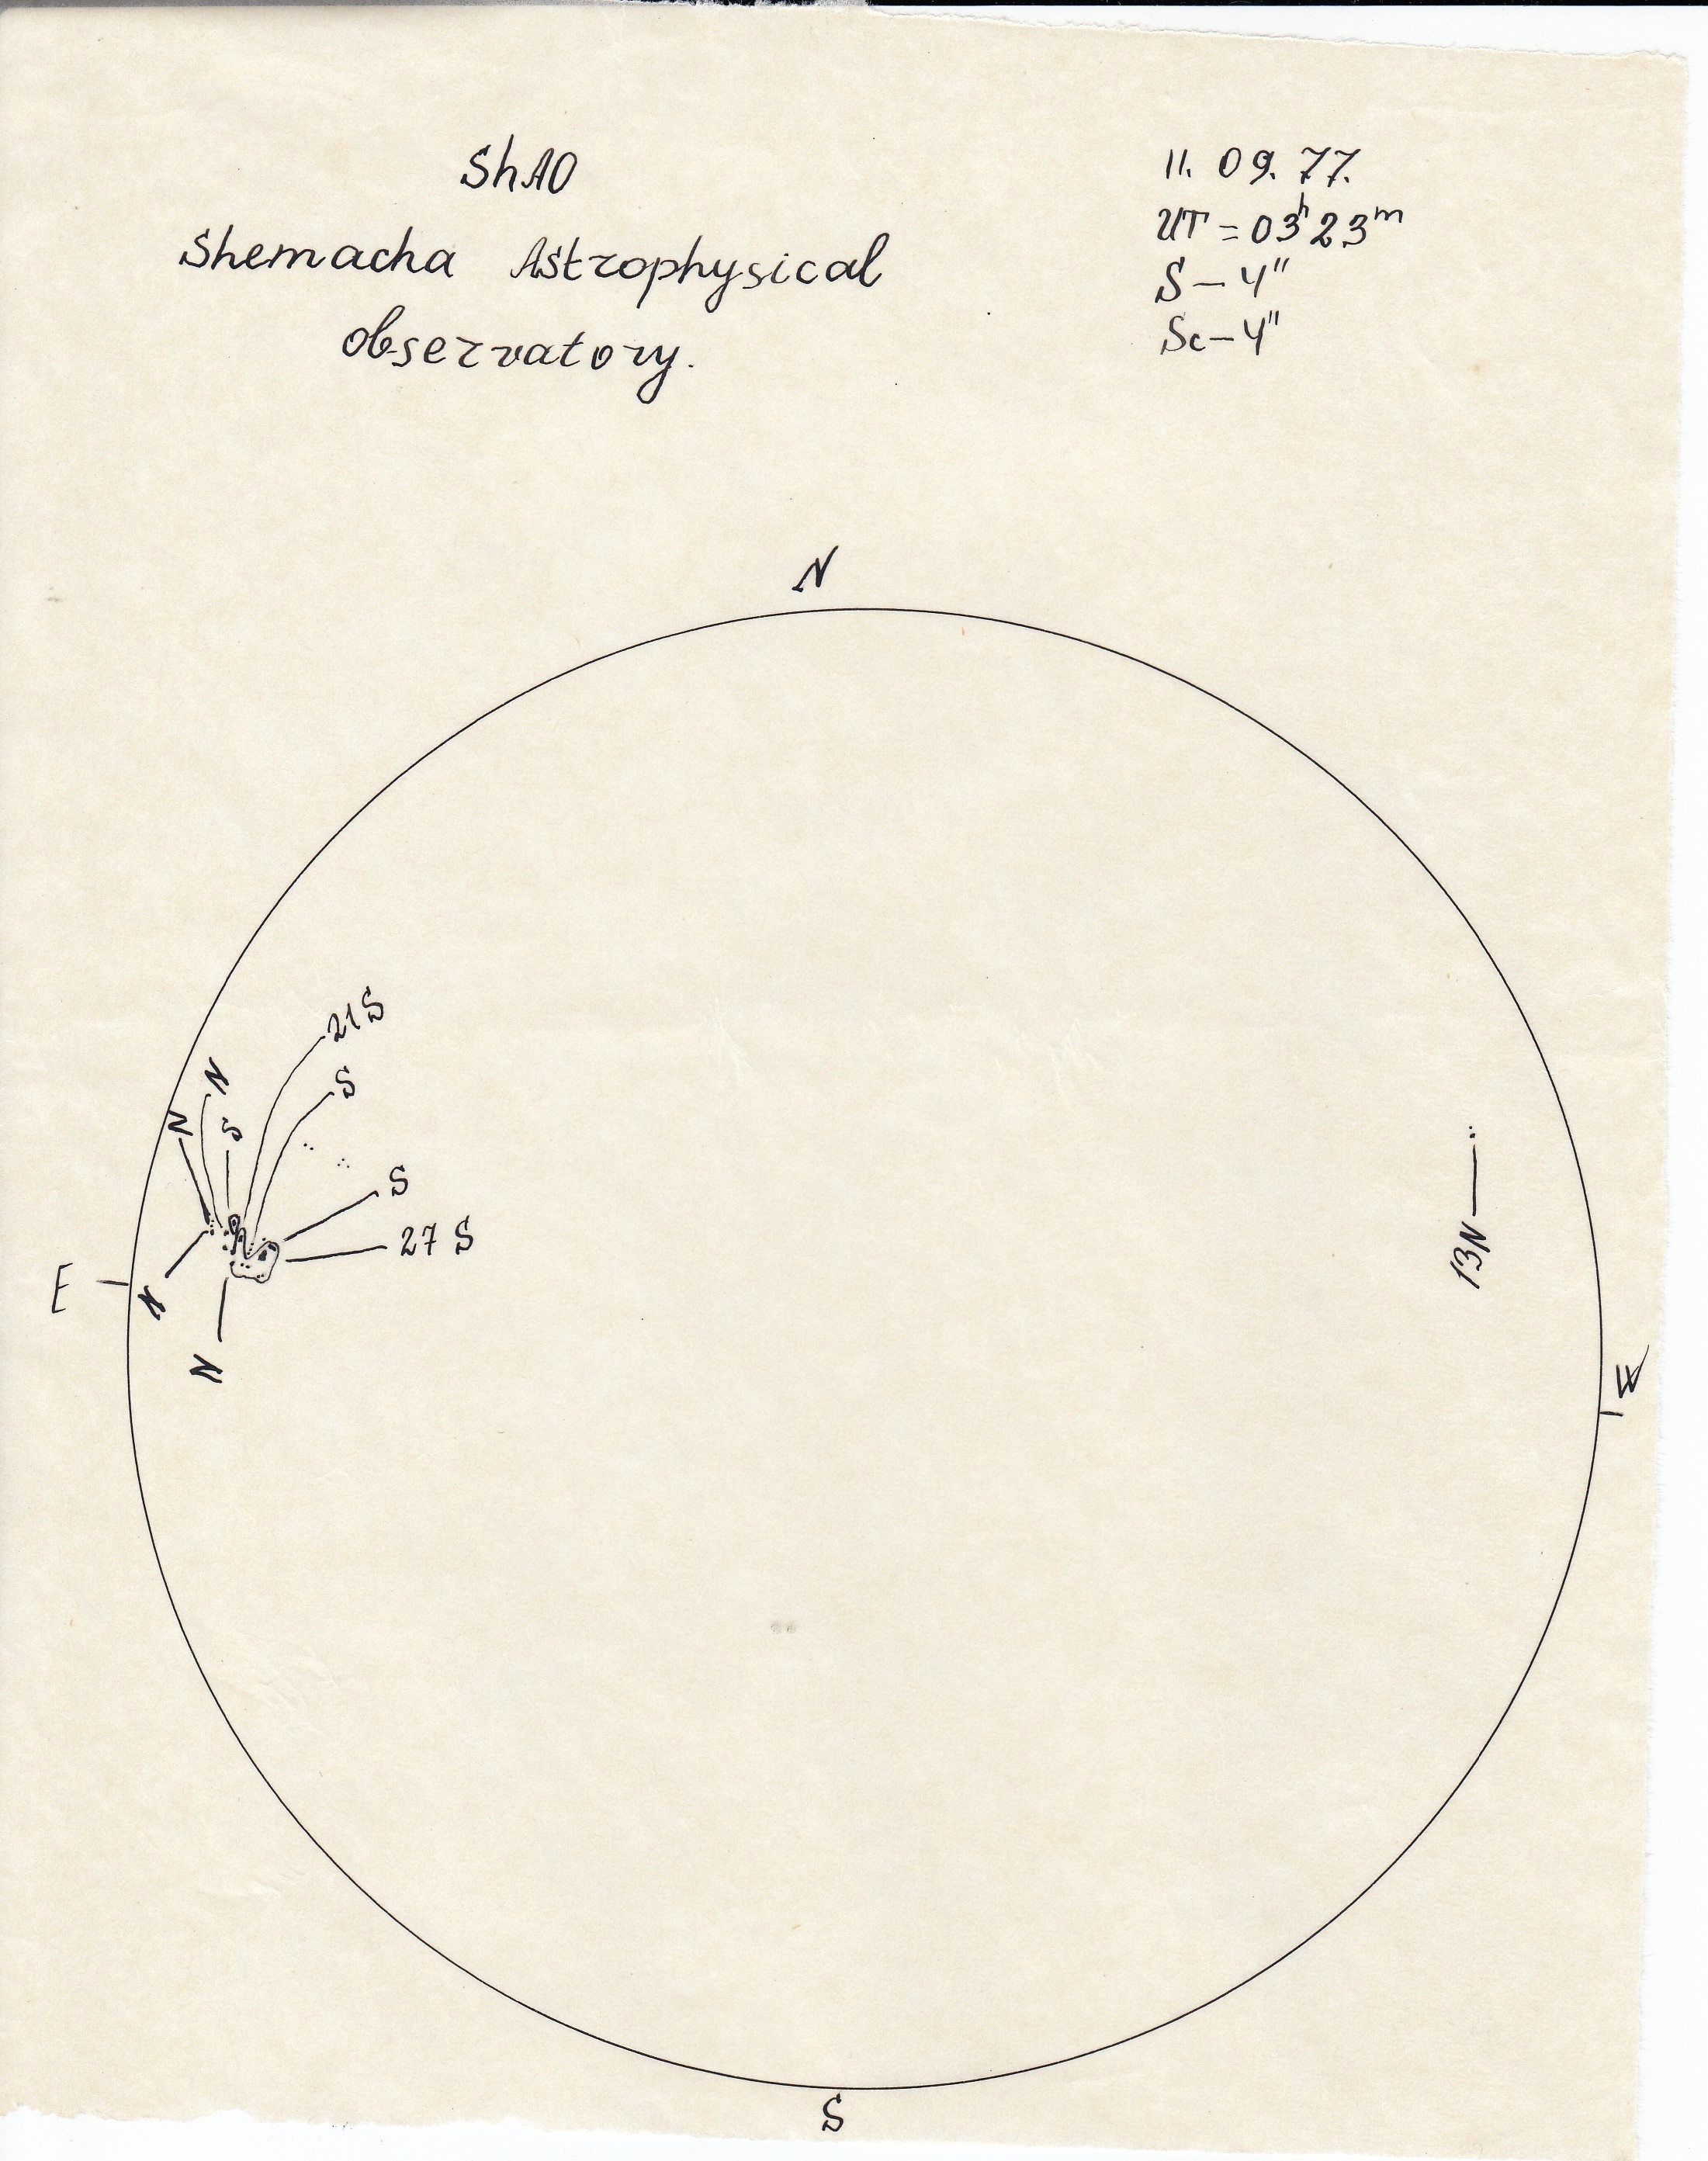 ShAO
Shemacha Astrophysical
observatory.
11. 09. 77.
UT = 03h 23m
S – 4"
Sc – 4"
N
21S
S
N
N
S
S
27 S
13N
E
N
N
W
S